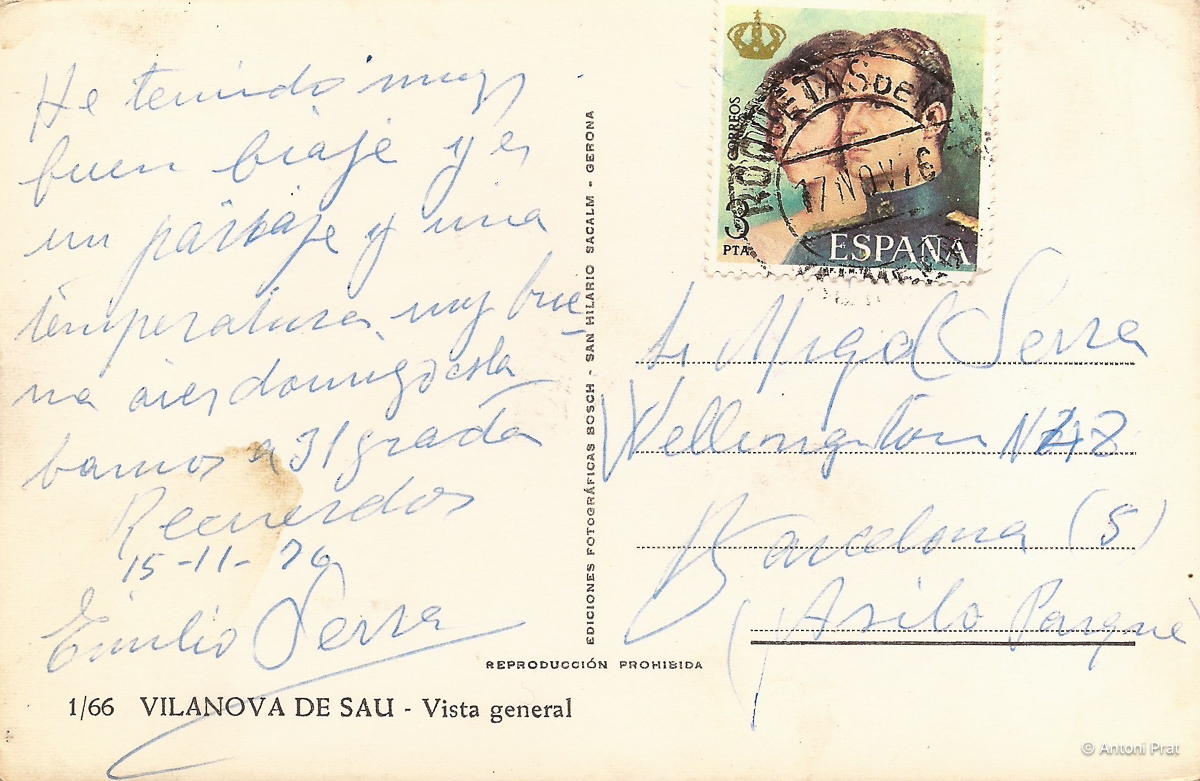 He tenido muy
buen biaje y es
un paisaje y una
temperatura muy bue-
na aier domingo esta
bamos a 31 grada
Recuerdos
15-11-76
Emilio Serra
1/66 VILANOVA DE SAU - Vista general
REPRODUCCIÓN PROHIBIDA
EDICIONES FOTOGRÁFICAS BOSCH - SAN HILARIO SACALM - GERONA
CORREOS
3
PTA
ESPAÑA
F.N.M.T.
ROQUETAS DE
17 NOV 76
Sr Migel Serra
Wellington N
Barcelona (5)
(Asilo Parque
© Antoni Prat